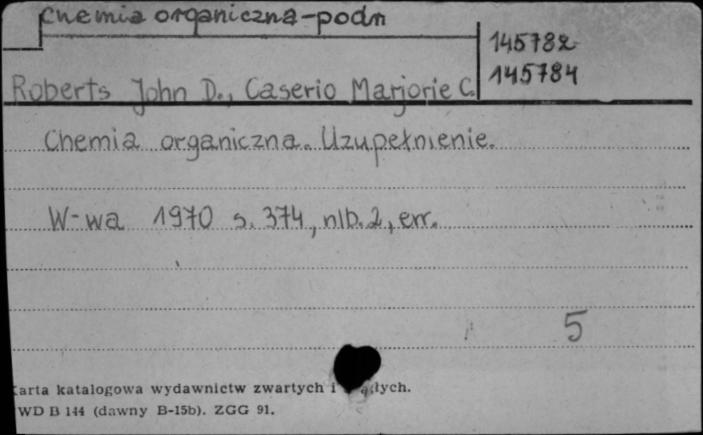 Chemia organiczna-podn
145782
145784
Roberts John D., Caserio Marjorie C.
Chemia organiczna. Uzupełnienie.
W-wa 1970 s. 374, nlb. 2, err.
5
Karta katalogowa wydawnictw zwartych i
WD B 144 (dawny B-15b). ZGG 91.